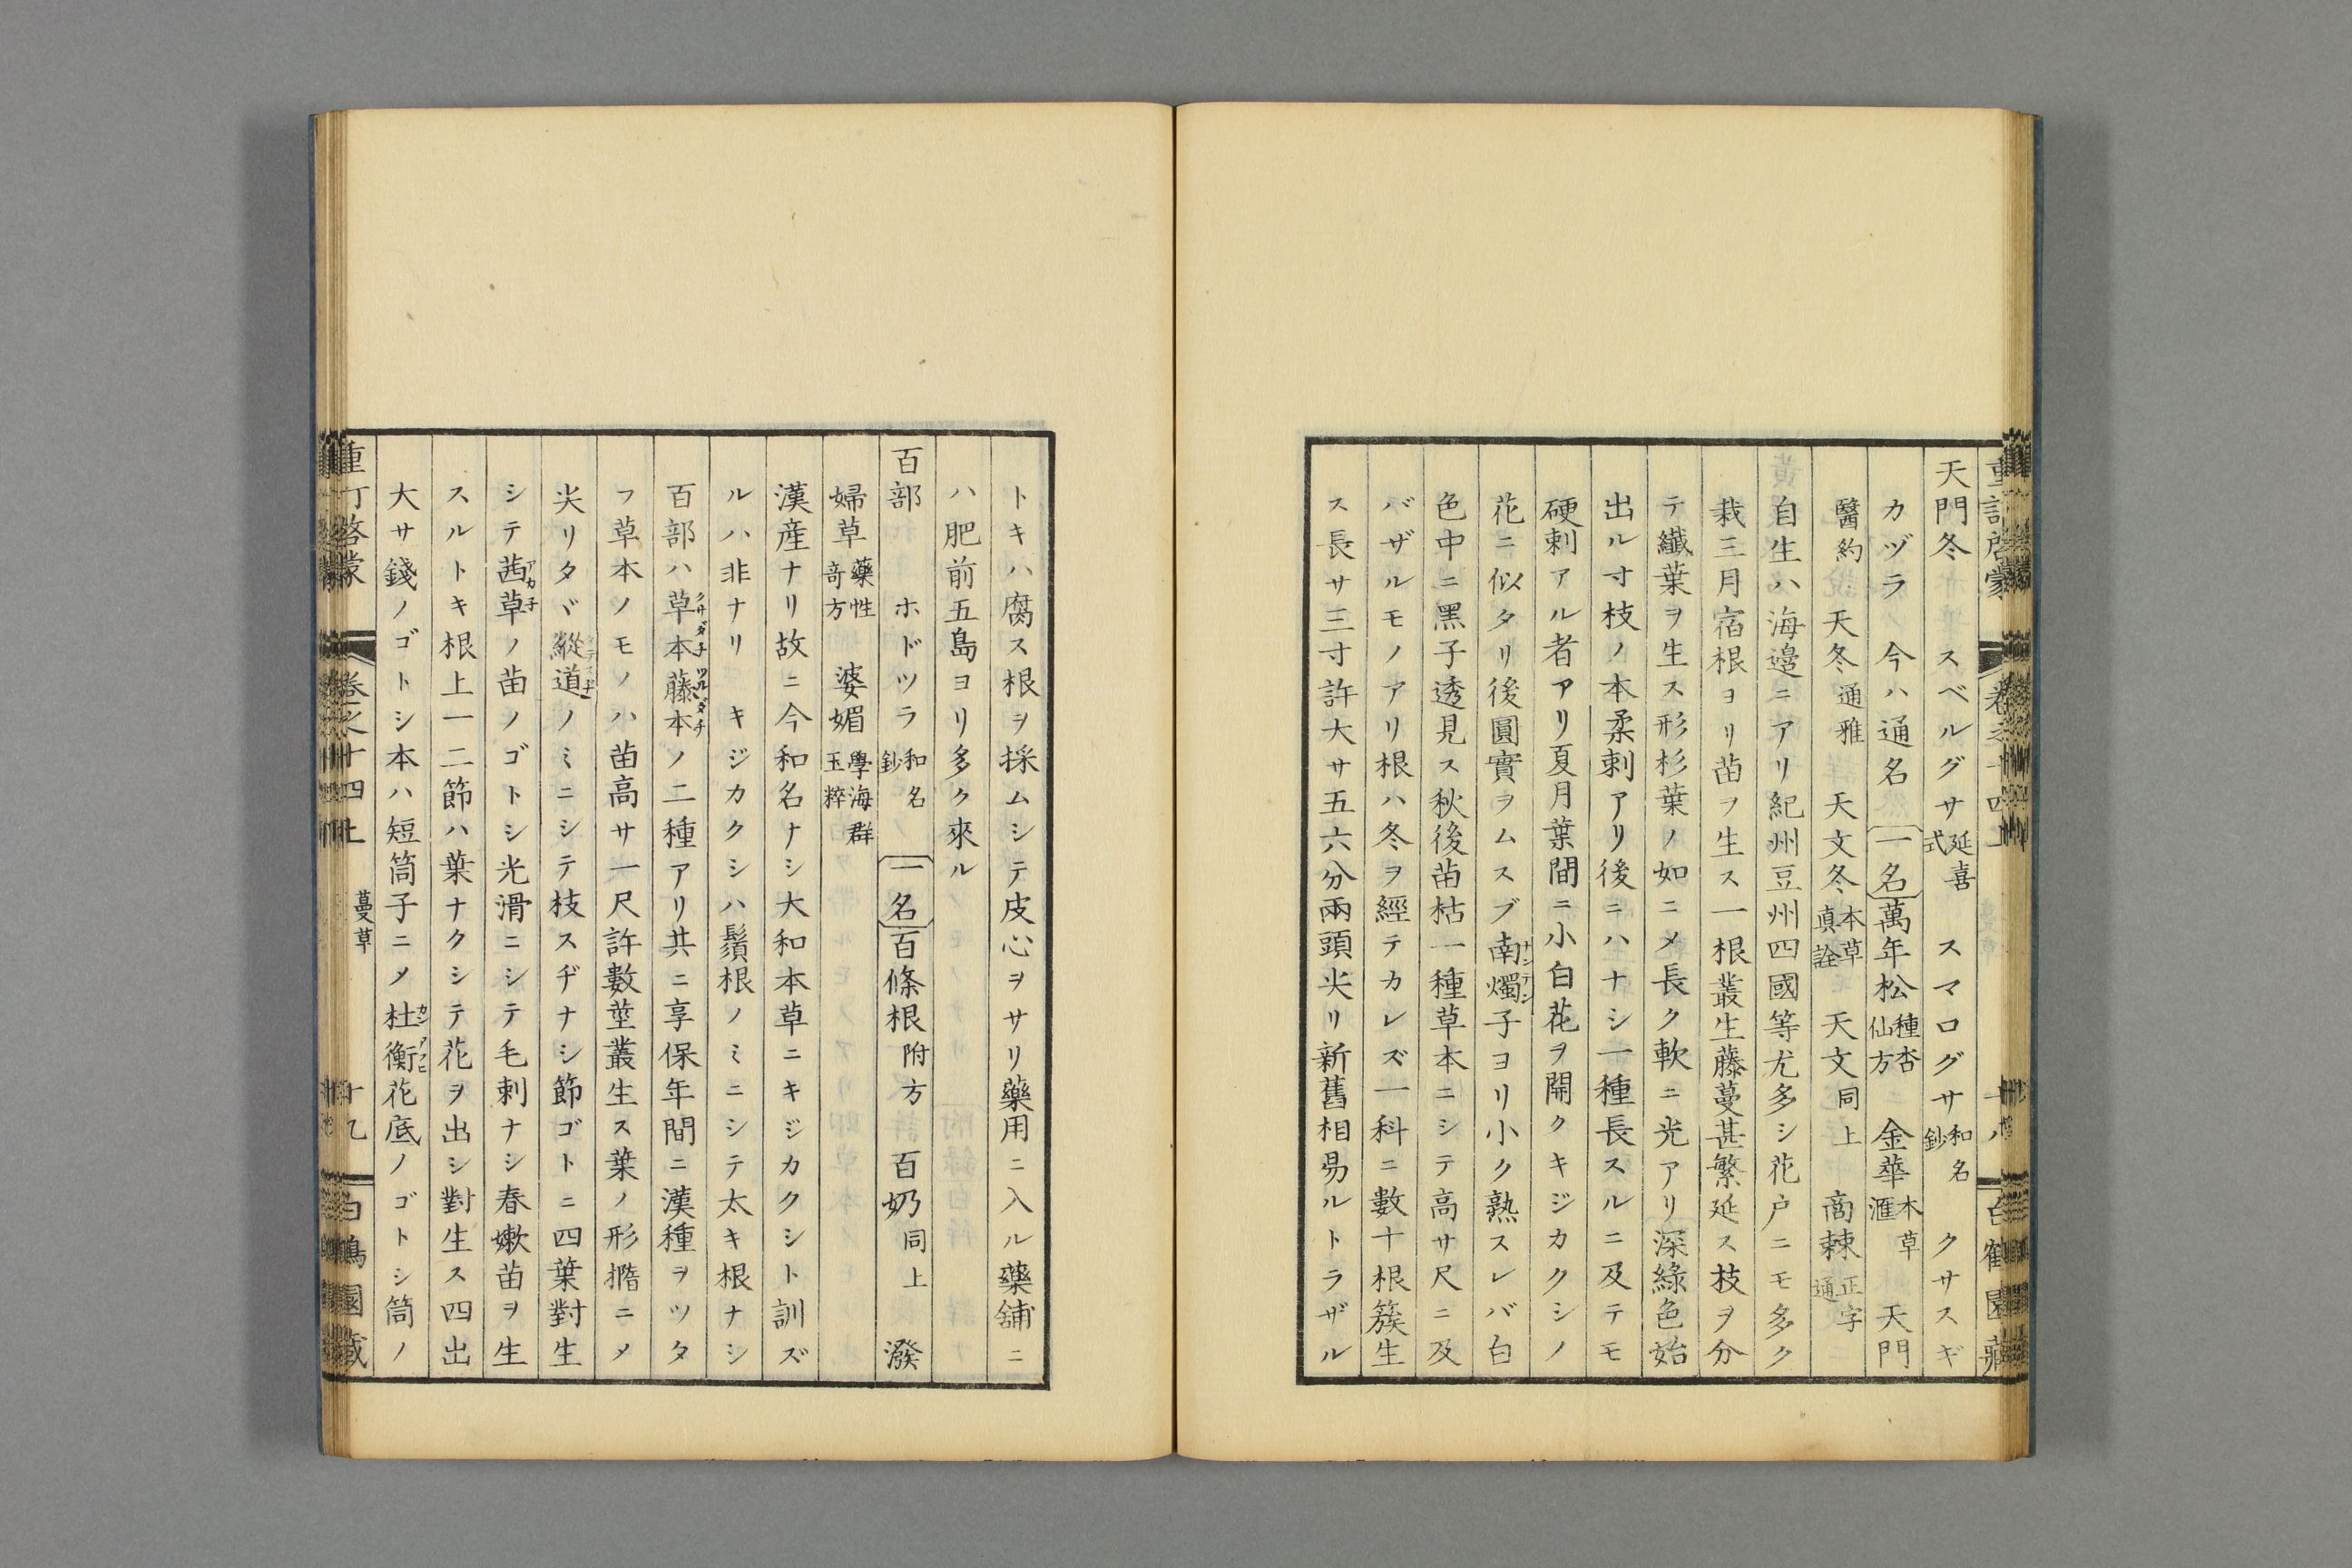 重訂啓蒙 卷之十四上 十八 白鶴園藏
天門冬 スベルグサ 延喜式 スマログサ 和名鈔 クサスギ
カヅラ 今ハ通名 一名 萬年松 種杏仙方 金華 本草滙 天門
醫約 天冬 通雅 天文冬 本草眞詮 天文 同上 啇棘 正字通
自生ハ海邉ニアリ紀州豆州四國等尤多シ花户ニモ多ク
栽三月宿根ヨリ苗ヲ生ス一根叢生藤蔓甚繁延ス枝ヲ分
テ纎葉ヲ生ス形杉葉ノ如ニメ長ク軟ニ光アリ深綠色始
出ル寸枝ノ本柔刺アリ後ニハナシ一種長スルニ及テモ
硬刺アル者アリ夏月葉間ニ小白花ヲ開クキジカクシノ
花ニ似タリ後圓實ヲムスブ南燭子ヨリ小ク熟スレバ白
ナンテン
色中ニ黑子透見ス秋後苗枯一種草本ニシテ高サ尺ニ及
バザルモノアリ根ハ冬ヲ經テカレズ一科ニ數十根簇生
ス長サ三寸許大サ五六分兩頭尖リ新舊相昜ルトラザル
トキハ腐ス根ヲ採ムシテ皮心ヲサリ藥用ニ入ル藥舖ニ
ハ肥前五島ヨリ多ク來ル
百部 ホドツラ 和名鈔 一名 百條根 附方 百奶 同上 潑
婦草 藥性竒方 婆媚 學海群玉粹
漢産ナリ故ニ今和名ナシ大和本草ニキジカクシト訓ズ
ルハ非ナリ キジカクシハ鬚根ノミニシテ太キ根ナシ
百部ハ草本藤本ノ二種アリ共ニ享保年間ニ漢種ヲツタ
クサダチ ツルダチ
フ草本ノモノハ苗高サ一尺許數莖叢生ス葉ノ形橢ニメ
尖リタヾ縱道ノミニシテ枝スヂナシ節ゴトニ四葉對生
シテ茜草ノ苗ノゴトシ光滑ニシテ毛刺ナシ春嫩苗ヲ生
アカ子
スルトキ根上一二節ハ葉ナクシテ花ヲ出シ對生ス四出
大サ錢ノゴトシ本ハ短筒子ニメ杜衡花底ノゴトシ筒ノ
カンアフヒ
重訂啓蒙 卷之十四上 蔓草 十九 白鶴園藏